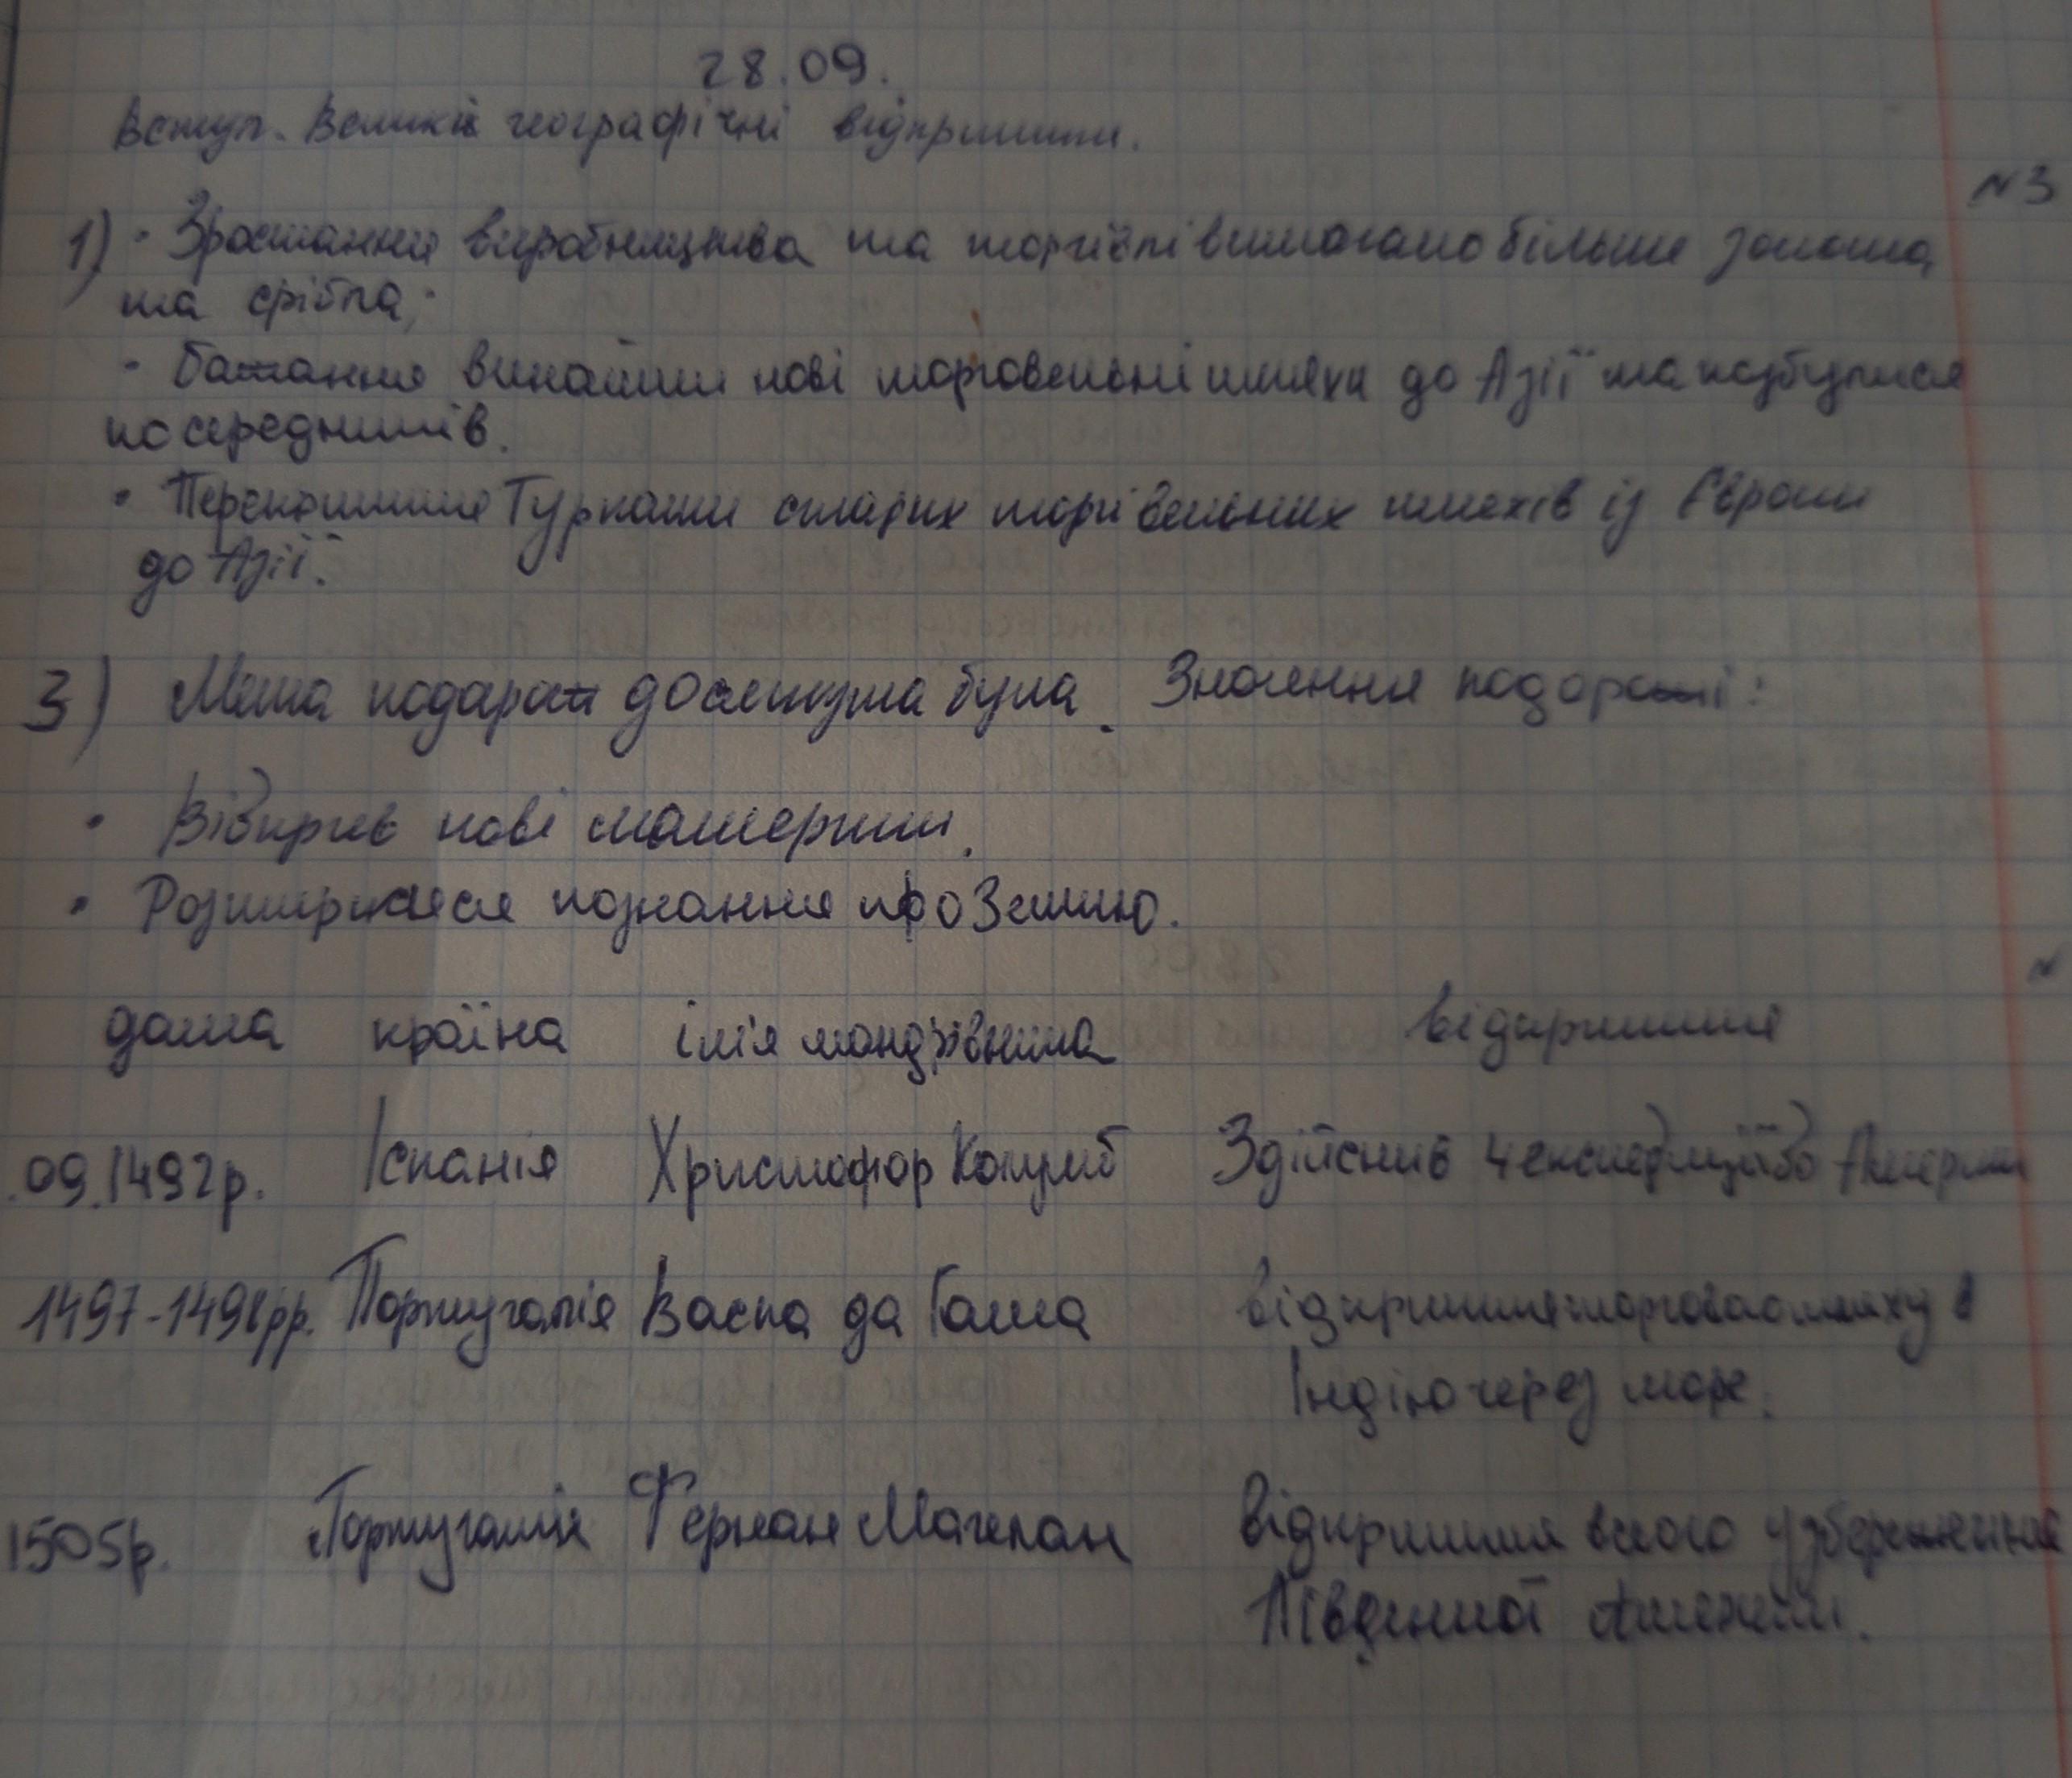 28.09.
Вступ. Великі географічні відкриття.
№3
1) · Зростання виробництва та торгівлі вимагало більше золота
та срібла;
· Бажання винайти нові торговельні шляхи до Азії та позбутися
посередників.
· Перекриття Турками старих торгівельних шляхів із Європи
до Азії.
3) Мета подорожі досягнута була. Значення подорожі:
· Відкрив нові материки.
· Розширилися познання про Землю.
дата країна ім'я мандрівника відкриття
.09.1492р. Іспанія Христофор Колумб Здійснив 4 експедиції до Америки
1497-1498рр. Португалія Васка да Гама відкриття торгова шляху в
Індію через море.
1505р. Португалія Фернан Магелан відкриття всього узбережжя
Південної Америки.